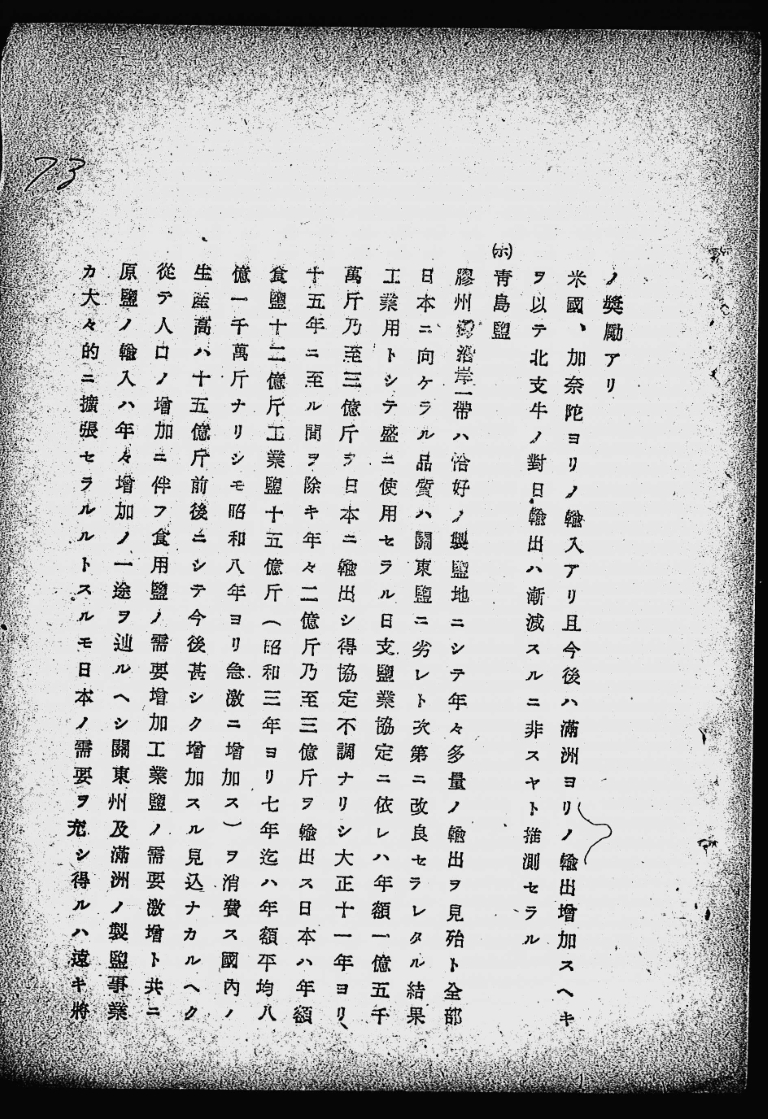 73
ノ奬勵アリ
米國、加奈陀ヨリノ輸入アリ且今後ハ滿洲ヨリノ輸出增加スヘキ
ヲ以テ北支牛ノ對日輸出ハ漸減スルニ非スヤト推測セラル
㈭靑島鹽
膠州灣沿岸一帶ハ恰好ノ製鹽地ニシテ年々多量ノ輸出ヲ見殆ト全部
日本ニ向ケラル品質ハ關東鹽ニ劣レト次第ニ改良セラレタル結果
工業用トシテ盛ニ使用セラル日支鹽業協定ニ依レハ年額一億五千
萬斤乃至三億斤ヲ日本ニ輸出シ得協定不調ナリシ大正十一年ヨリ、
十五年ニ至ル間ヲ除キ年々二億斤乃至三億斤ヲ輸出ス日本ハ年額
食鹽十二億斤工業鹽十五億斤（昭和三年ヨリ七年迄ハ年額平均八
億一千萬斤ナリシモ昭和八年ヨリ急激ニ增加ス）ヲ消費ス國內ノ
生產高ハ十五億斤前後ニシテ今後甚シク增加スル見込ナカルヘク
從テ人口ノ增加ニ伴フ食用鹽ノ需要增加工業鹽ノ需要激增ト共ニ
原鹽ノ輸入ハ年々增加ノ一途ヲ辿ルヘシ關東州及滿洲ノ製鹽事業
カ大々的ニ擴張セラルルトスルモ日本ノ需要ヲ充シ得ルハ遠キ將